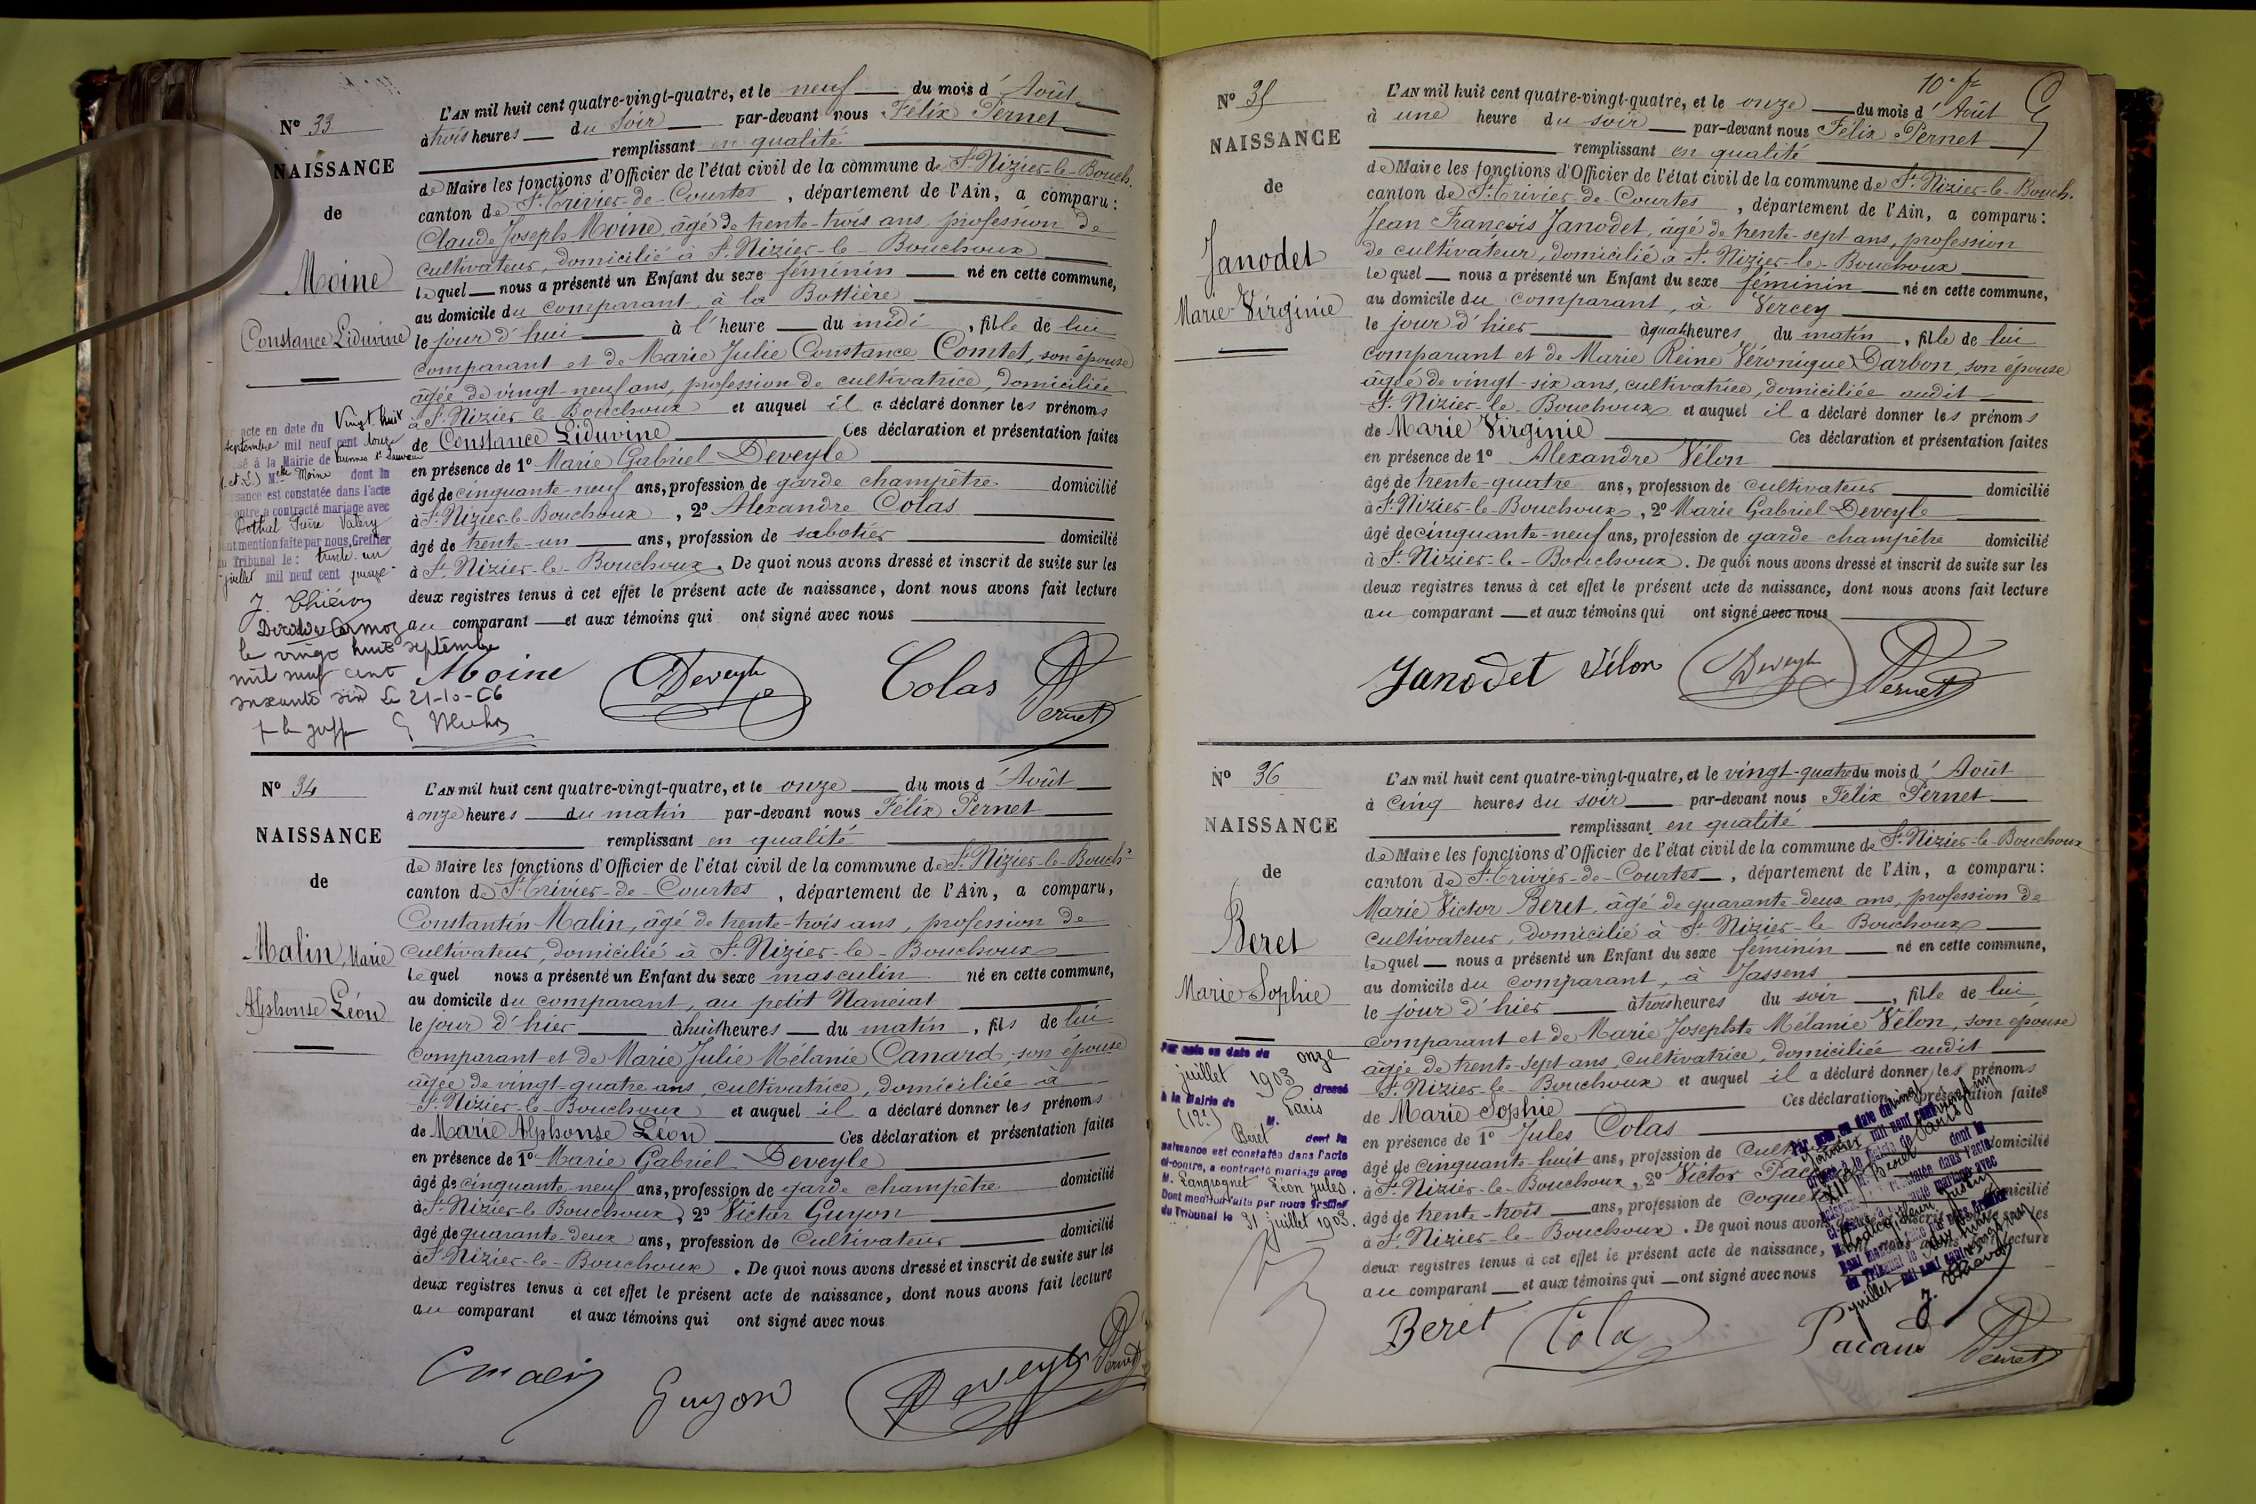 N° 33
NAISSANCE
de
Moine
Constance Liduvine
L'AN mil huit cent quatre-vingt-quatre, et le neuf du mois d'Août
à trois heures du soir par-devant nous Félix Pernet
remplissant en qualité
de Maire les fonctions d'Officier de l'état civil de la commune de St. Nizier-le-Bouch.
canton de St. Trivier-de-Courtes, département de l'Ain, a comparu:
Claude Joseph Moine, âgé de trente-trois ans, profession de
cultivateur, domicilié à St. Nizier-le-Bouchoux
lequel nous a présenté un Enfant du sexe féminin né en cette commune,
au domicile du comparant, à la Bottière
le jour d'hui à l'heure du midi, fille de lui
comparant et de Marie Julie Constance Comtet, son épouse
âgée de vingt-neuf ans, profession de cultivatrice, domiciliée
à St. Nizier-le-Bouchoux et auquel il a déclaré donner les prénoms
de Constance Liduvine Ces déclaration et présentation faites
en présence de 1° Marie Gabriel Deveyle
âgé de cinquante-neuf ans, profession de garde champêtre domicilié
à St. Nizier-le-Bouchoux, 2° Alexandre Colas
âgé de trente-un ans, profession de sabotier domicilié
à St. Nizier-le-Bouchoux. De quoi nous avons dressé et inscrit de suite sur les
deux registres tenus à cet effet le présent acte de naissance, dont nous avons fait lecture
au comparant et aux témoins qui ont signé avec nous
Moine Deveyle Colas Pernet
acte en date du Vingt huit
septembre mil neuf cent douze
à la Mairie de
Melle Moine dont la
sance est constatée dans l'acte
contre a contracté mariage avec
Pierre Valery
mention faite par nous, Greffier
du Tribunal le: trente un
juillet mil neuf cent quinze
le vingt huit septembre
mil neuf cent
soixante six Le 21-10-66
N° 34
NAISSANCE
de
Malin, Marie
Alphonse Léon
L'AN mil huit cent quatre-vingt-quatre, et le onze du mois d'Août
à onze heures du matin par-devant nous Félix Pernet
remplissant en qualité
de Maire les fonctions d'Officier de l'état civil de la commune de St. Nizier-le-Bouch.
canton de St. Trivier-de-Courtes, département de l'Ain, a comparu,
Constantin Malin, âgé de trente-trois ans, profession de
cultivateur, domicilié à St. Nizier-le-Bouchoux
lequel nous a présenté un Enfant du sexe masculin né en cette commune,
au domicile du comparant, au petit Nanciat
le jour d'hier à huit heures du matin, fils de lui
comparant et de Marie Julie Mélanie Canard, son épouse
âgée de vingt-quatre ans, cultivatrice, domiciliée à
St. Nizier-le-Bouchoux et auquel il a déclaré donner les prénoms
de Marie Alphonse Léon Ces déclaration et présentation faites
en présence de 1° Marie Gabriel Deveyle
âgé de cinquante-neuf ans, profession de garde champêtre domicilié
à St. Nizier-le-Bouchoux, 2° Victor Guyon
âgé de quarante-deux ans, profession de Cultivateur domicilié
à St. Nizier-le-Bouchoux. De quoi nous avons dressé et inscrit de suite sur les
deux registres tenus à cet effet le présent acte de naissance, dont nous avons fait lecture
au comparant et aux témoins qui ont signé avec nous
Guyon Deveyle Pernet
N° 35
NAISSANCE
de
Janodet
Marie Virginie
L'AN mil huit cent quatre-vingt-quatre, et le onze du mois d'Août
à une heure du soir par-devant nous Félix Pernet
remplissant en qualité
de Maire les fonctions d'Officier de l'état civil de la commune de St. Nizier-le-Bouch.
canton de St. Trivier-de-Courtes, département de l'Ain, a comparu:
Jean François Janodet, âgé de trente-sept ans, profession
de cultivateur, domicilié à St. Nizier-le-Bouchoux
lequel nous a présenté un Enfant du sexe féminin né en cette commune,
au domicile du comparant, à Vercey
le jour d'hier à quatre heures du matin, fille de lui
comparant et de Marie Reine Véronique Darbon, son épouse
âgée de vingt-six ans, cultivatrice, domiciliée audit
St. Nizier-le-Bouchoux et auquel il a déclaré donner les prénoms
de Marie Virginie Ces déclaration et présentation faites
en présence de 1° Alexandre Vélon
âgé de trente-quatre ans, profession de cultivateur domicilié
à St. Nizier-le-Bouchoux, 2° Marie Gabriel Deveyle
âgé de cinquante-neuf ans, profession de garde-champêtre domicilié
à St. Nizier-le-Bouchoux. De quoi nous avons dressé et inscrit de suite sur les
deux registres tenus à cet effet le présent acte de naissance, dont nous avons fait lecture
au comparant et aux témoins qui ont signé avec nous
Janodet Vélon Deveyle Pernet
N° 36
NAISSANCE
de
Beret
Marie Sophie
L'AN mil huit cent quatre-vingt-quatre, et le vingt-quatre du mois d'Août
à cinq heures du soir par-devant nous Félix Pernet
remplissant en qualité
de Maire les fonctions d'Officier de l'état civil de la commune de St. Nizier-le-Bouchoux
canton de St. Trivier-de-Courtes, département de l'Ain, a comparu:
Marie Victor Beret, âgé de quarante-deux ans, profession de
cultivateur, domicilié à St. Nizier-le-Bouchoux
lequel nous a présenté un Enfant du sexe féminin né en cette commune,
au domicile du comparant, à Jassens
le jour d'hier à trois heures du soir, fille de lui
comparant et de Marie Josephte Mélanie Vélon, son épouse
âgée de trente-sept ans, cultivatrice, domiciliée audit
St. Nizier-le-Bouchoux et auquel il a déclaré donner les prénoms
de Marie Sophie Ces déclaration et présentation faites
en présence de 1° Jules Colas
âgé de cinquante-huit ans, profession de domicilié
à St. Nizier-le-Bouchoux, 2° Victor
âgé de trente-trois ans, profession de domicilié
à St. Nizier-le-Bouchoux. De quoi nous avons inscrit de suite sur les
deux registres tenus à cet effet le présent acte de naissance, lecture
au comparant et aux témoins qui ont signé avec nous
Beret Cola Pacaud Pernet
Par acte en date du onze
juillet 1903 dressé
à la Mairie de Paris
(12e) M.
Beret dont la
naissance est constatée dans l'acte
ci-contre, a contracté mariage avec
M. Langrognet Léon Jules.
Dont mention faite par nous Greffier
du Tribunal le 31 juillet 1903.
Par acte en date du vingt
janvier mil neuf cent
dont la
mariage avec
juillet mil neuf cent